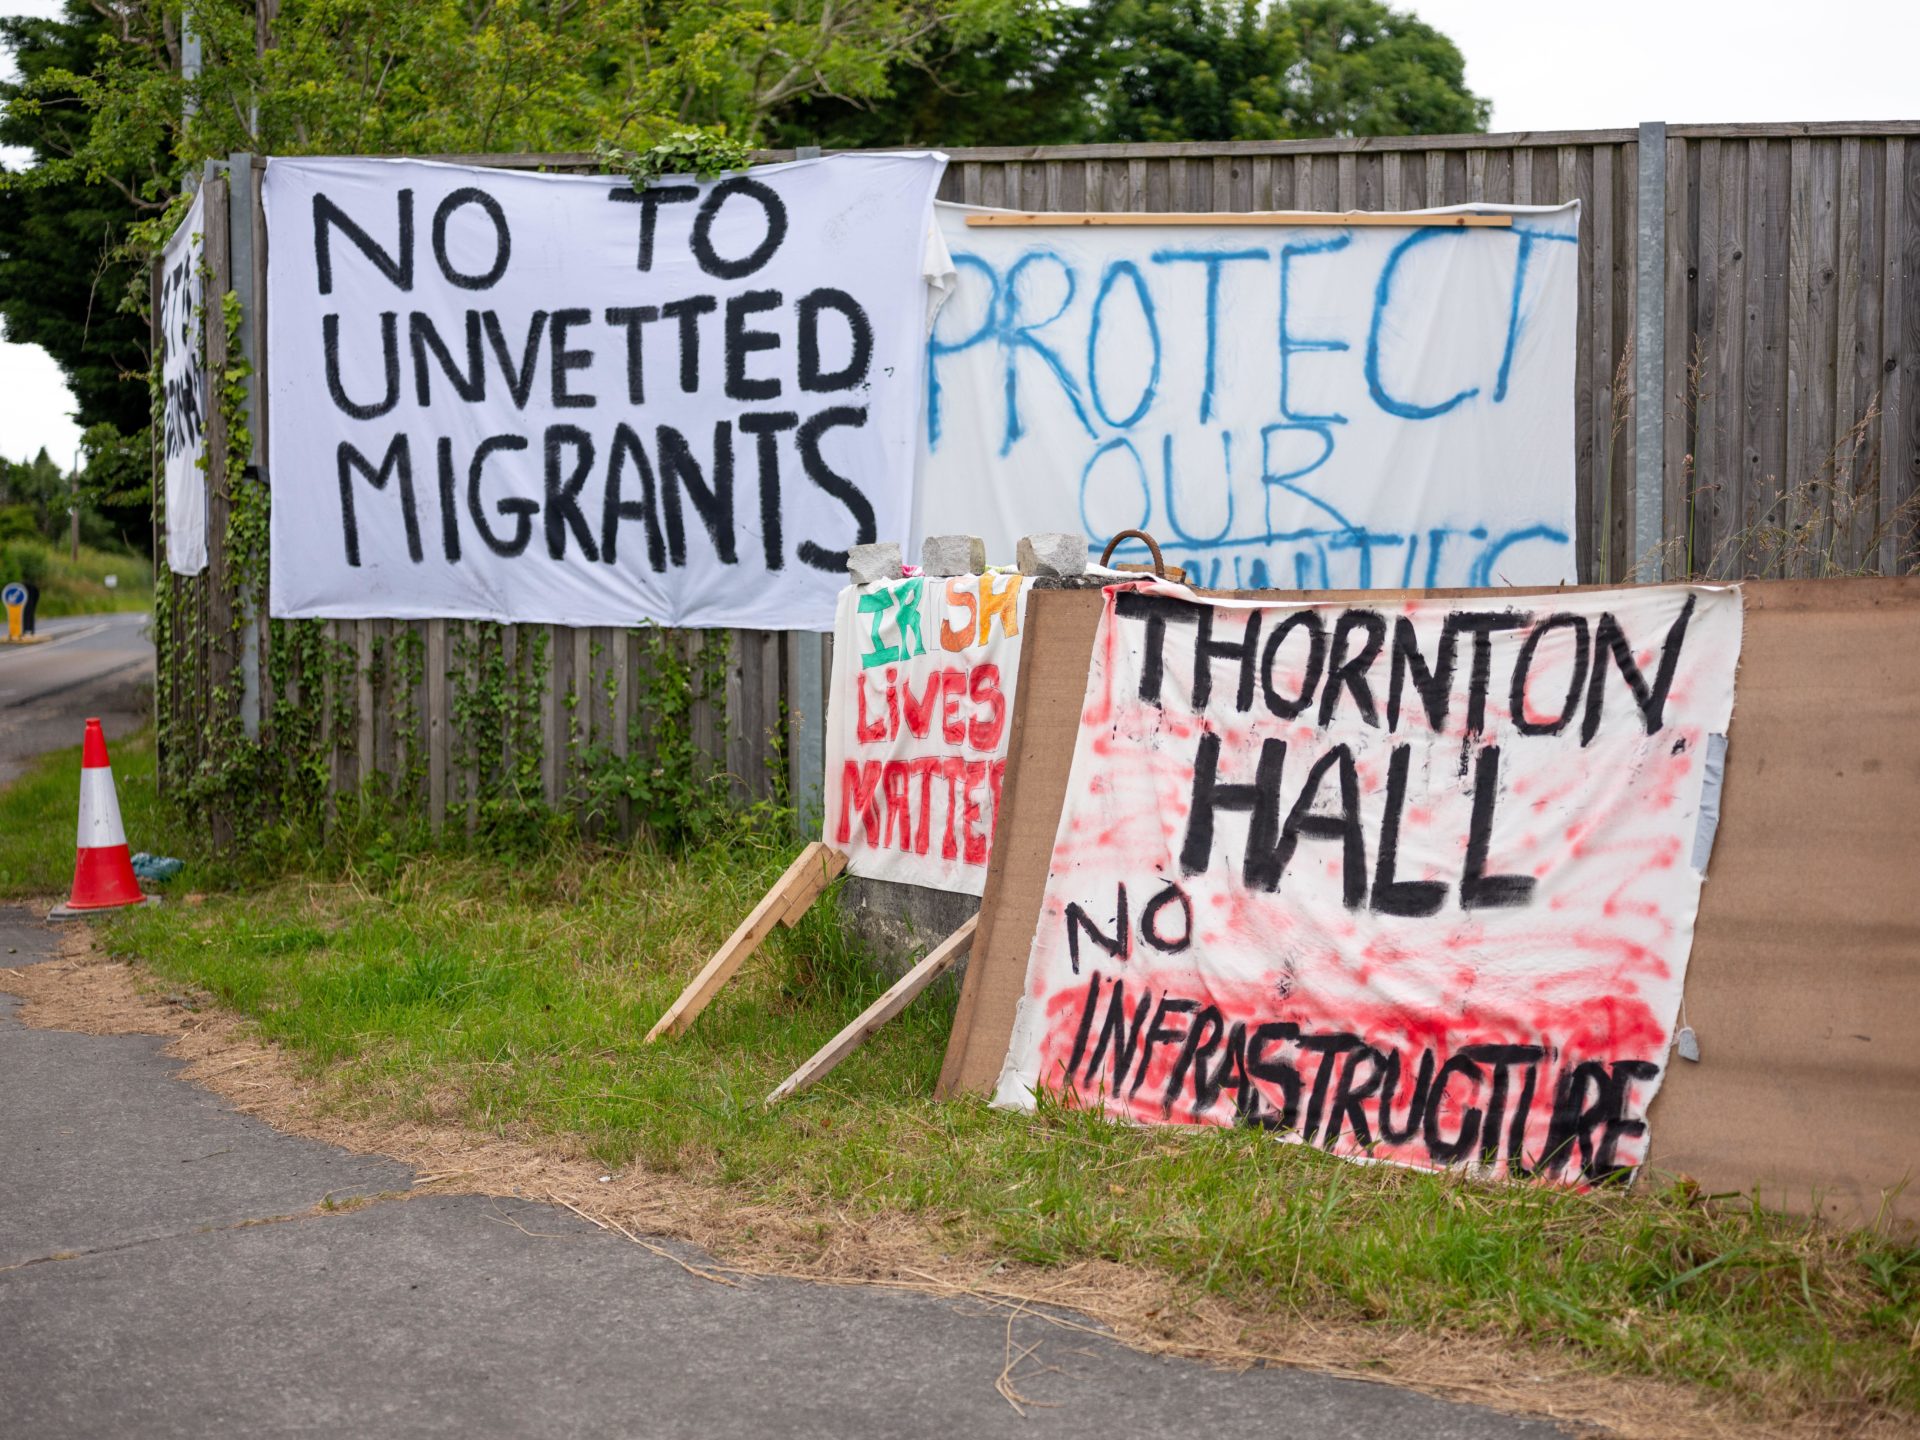 NO TO
UNVETTED
MIGRANTS
PROTECT
OUR
IRISH
LIVES
MATTER
THORNTON
HALL
NO
INFRASTRUCTURE